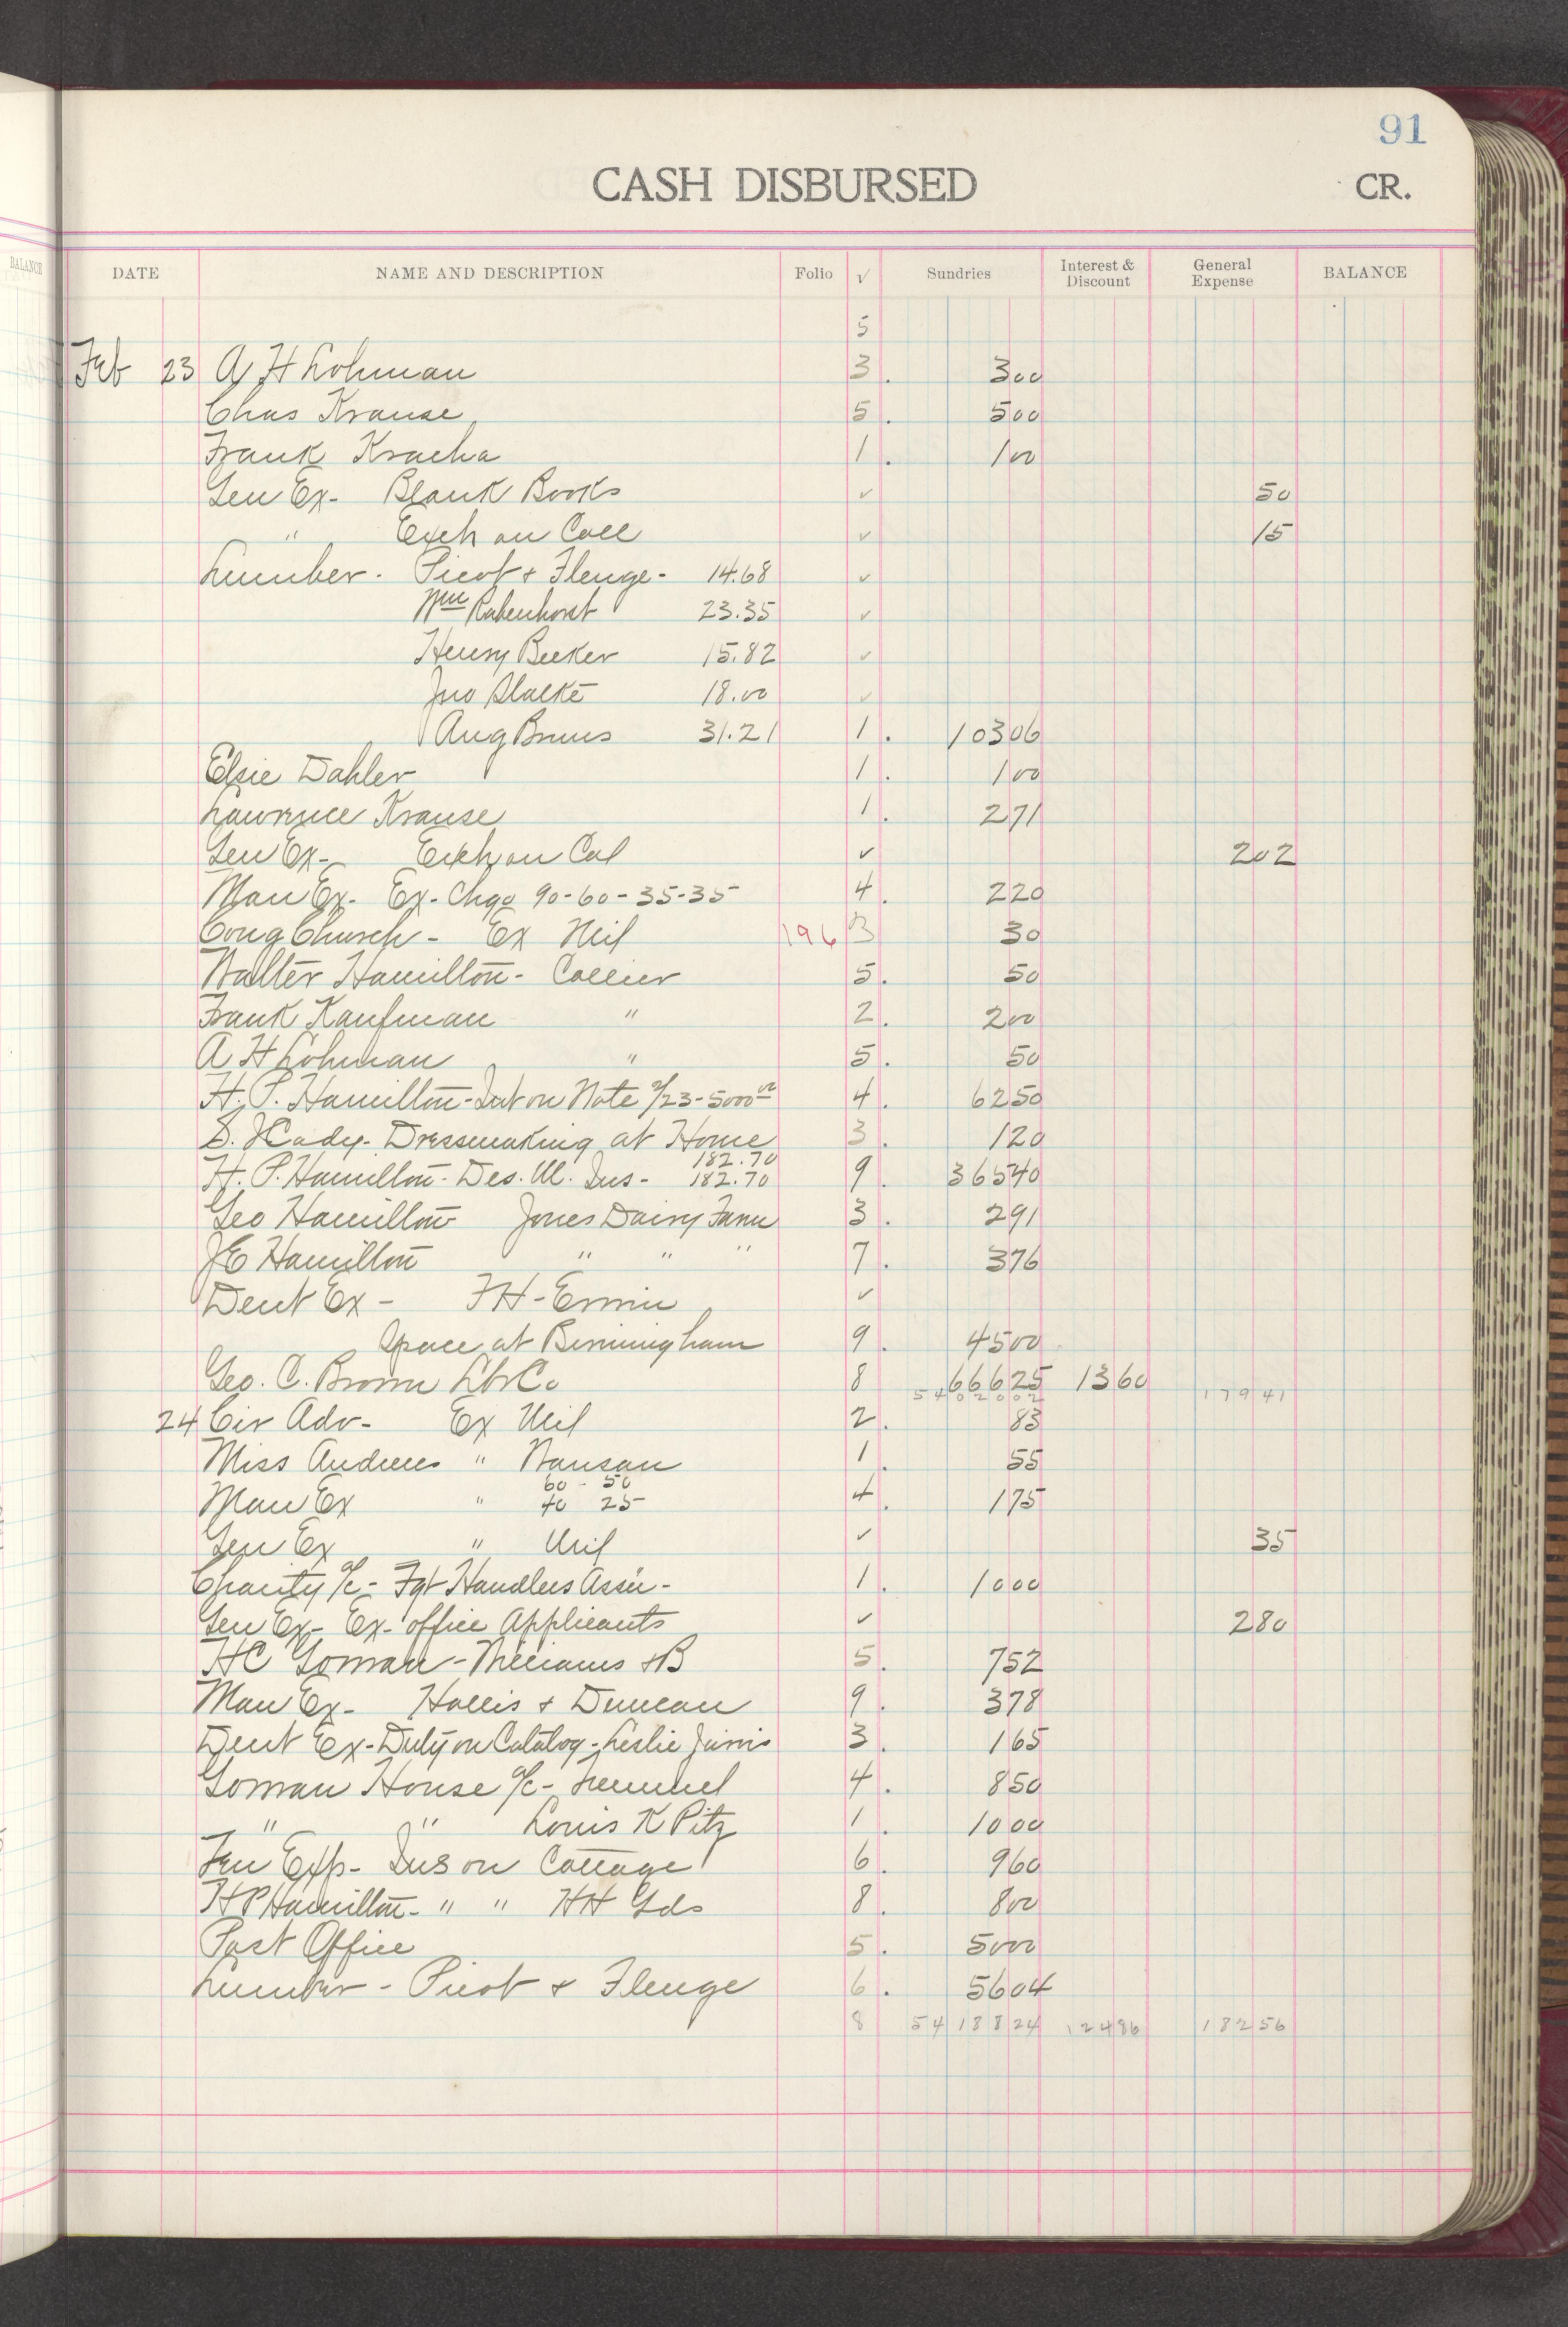 91
CASH DISBURSED CR.
BALANCE DATE NAME AND DESCRIPTION Folio √ Sundries Interest & Discount General Expense BALANCE
5
Feb 23 A H Lohman 3 . 300
Chas Krause 5 . 500
Frank Kracha 1 . 100
Gen Ex- Blank Books ✓ 50
" Exch on Coll ✓ 15
Lumber - Picot & Flenge - 14.68 ✓
Wm Rabenhorst 23.35 ✓
Henry Becker 15.82 ✓
Jno 18.00 ✓
Aug Bruns 31.21 1 . 10306
Elsie Dahler 1 . 100
Lawrence Krause 1 . 271
Gen Ex- Exch on Col ✓ 202
Man Ex- Ex- Chgo 90-60-35-35 4 . 220
Cong Church - Ex Mil 196 3 30
Walter Hamilton - Collier 5 . 50
Frank Kaufman " 2 . 200
A H Lohman " 5 . 50
H. P. Hamilton - Int on Note 2/23 - 5000 00 4 . 6250
S. J Cady - Dressmaking at Home 3 . 120
182.70
H. P. Hamilton - Des. M. Ins - 182.70 9 . 36540
Geo Hamilton Jones Dairy Farm 3 . 291
J E Hamilton " " " 7 . 376
Dent Ex - F H - Ermin ✓
Space at Birmingham 9 . 4500
Geo. C. Brown Lbr Co 8 66625 1360
5402002 17941
24 Cir Adv - Ex Mil 2 . 83
Miss Andrews " Wausau 1 . 55
60 - 50
Man Ex " 40 25 4 . 175
Gen Ex " Mil ✓ 35
Charity a/c - Fgt Handlers Assn - 1 . 1000
Gen Ex - Ex - office Applicants ✓ 280
HC Gorman - Williams & B 5 . 752
Man Ex - Hollis & Duncan 9 . 378
Dent Ex - Duty on Catalog - Leslie 3 . 165
Gorman House a/c - 4 . 850
" " Louis K Pitz 1 . 1000
Exp - Ins on Cottage 6 . 960
H P Hamilton - " " HH Gds 8 . 800
Post Office 5 . 5000
Lumber - Picot & Flenge 6 . 5604
8 5418824 12486 18256